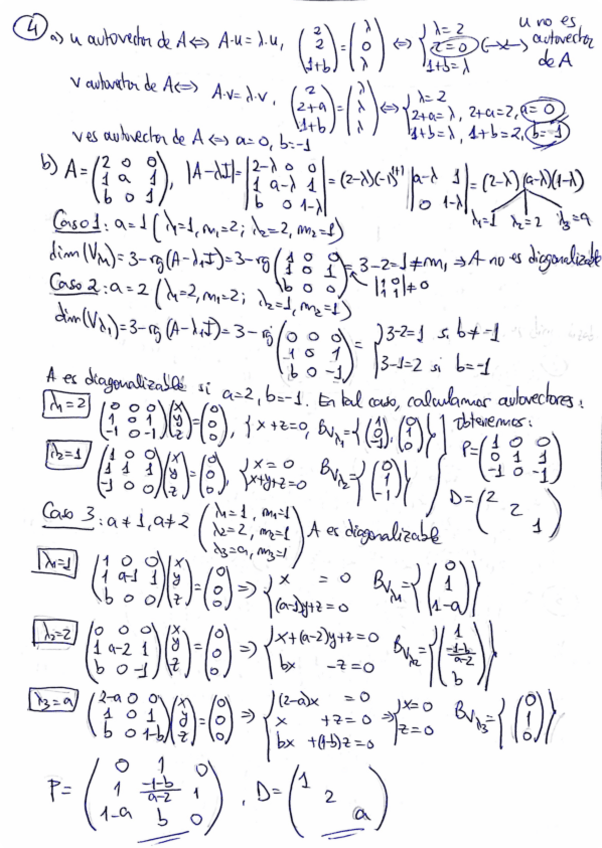 ④ a) u autovector de A ⇔ A·u = λ·u, (2; 2; 1+b) = (λ; 0; λ) ⇔ {λ=2; 2=0; 1+b=λ} u no es autovector de A
v autovector de A ⇔ A·v = λ·v, (2; 2+a; 1+b) = (λ; λ; λ) ⇔ {λ=2; 2+a=λ, 2+a=2, a=0; 1+b=λ, 1+b=2, b=-1}
v es autovector de A ⇔ a=0, b=-1
b) A = (2 0 0; 1 a 1; b 0 1), |A-λI| = |2-λ 0 0; 1 a-λ 1; b 0 1-λ| = (2-λ)(-1)^{1+1} |a-λ 1; 0 1-λ| = (2-λ)(a-λ)(1-λ)
λ₁=1 λ₂=2 λ₃=a
Caso 1: a=1 (λ₁=1, m₁=2; λ₂=2, m₂=1)
dim(V_λ₁) = 3-rg(A-λ₁I) = 3-rg(1 0 0; 1 0 1; b 0 0) = 3-2=1 ≠ m₁ ⇒ A no es diagonalizable
|1 0; 1 1| ≠ 0
Caso 2: a=2 (λ₁=2, m₁=2; λ₂=1, m₂=1)
dim(V_λ₁) = 3-rg(A-λ₁I) = 3-rg(0 0 0; 1 0 1; b 0 -1) = {3-2=1 si b≠-1; 3-1=2 si b=-1}
A es diagonalizable si a=2, b=-1. En tal caso, calculamos autovectores:
λ₁=2 (0 0 0; 1 0 1; -1 0 -1)(x; y; z) = (0; 0; 0), {x+z=0, B_{Vλ₁} = {(1; 0; -1), (0; 1; 0)} obtenemos:
λ₂=1 (1 0 0; 1 1 1; -1 0 0)(x; y; z) = (0; 0; 0), {x=0; x+y+z=0} B_{Vλ₂} = {(0; 1; -1)} P = (1 0 0; 0 1 1; -1 0 -1)
D = (2; 2; 1)
Caso 3: a≠1, a≠2 (λ₁=1, m₁=1; λ₂=2, m₂=1; λ₃=a, m₃=1) A es diagonalizable
λ₁=1 (1 0 0; 1 a-1 1; b 0 0)(x; y; z) = (0; 0; 0) ⇒ {x = 0; (a-1)y+z=0} B_{Vλ₁} = {(0; 1; 1-a)}
λ₂=2 (0 0 0; 1 a-2 1; b 0 -1)(x; y; z) = (0; 0; 0) ⇒ {x+(a-2)y+z=0; bx -z=0} B_{Vλ₂} = {(1; (-1-b)/(a-2); b)}
λ₃=a (2-a 0 0; 1 0 1; b 0 1-b)(x; y; z) = (0; 0; 0) ⇒ {(2-a)x = 0; x +z=0; bx +(1-b)z=0} ⇒ {x=0; z=0} B_{Vλ₃} = {(0; 1; 0)}
P = (0 1 0; 1 (-1-b)/(a-2) 1; 1-a b 0), D = (1; 2; a)